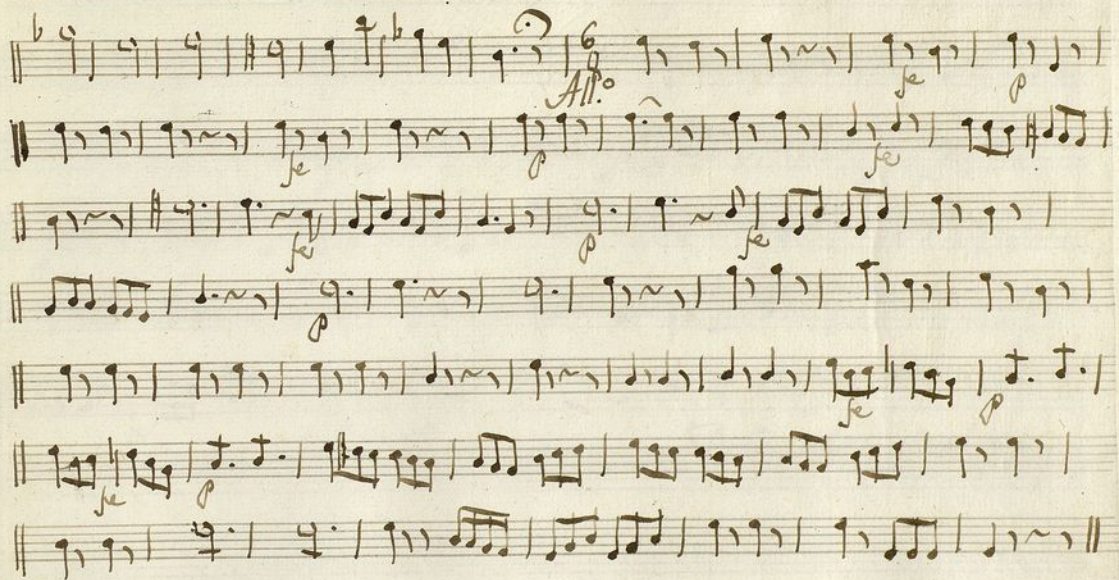 6
8
All.º
fe p
fe p fe
fe p fe
p
fe p
fe p